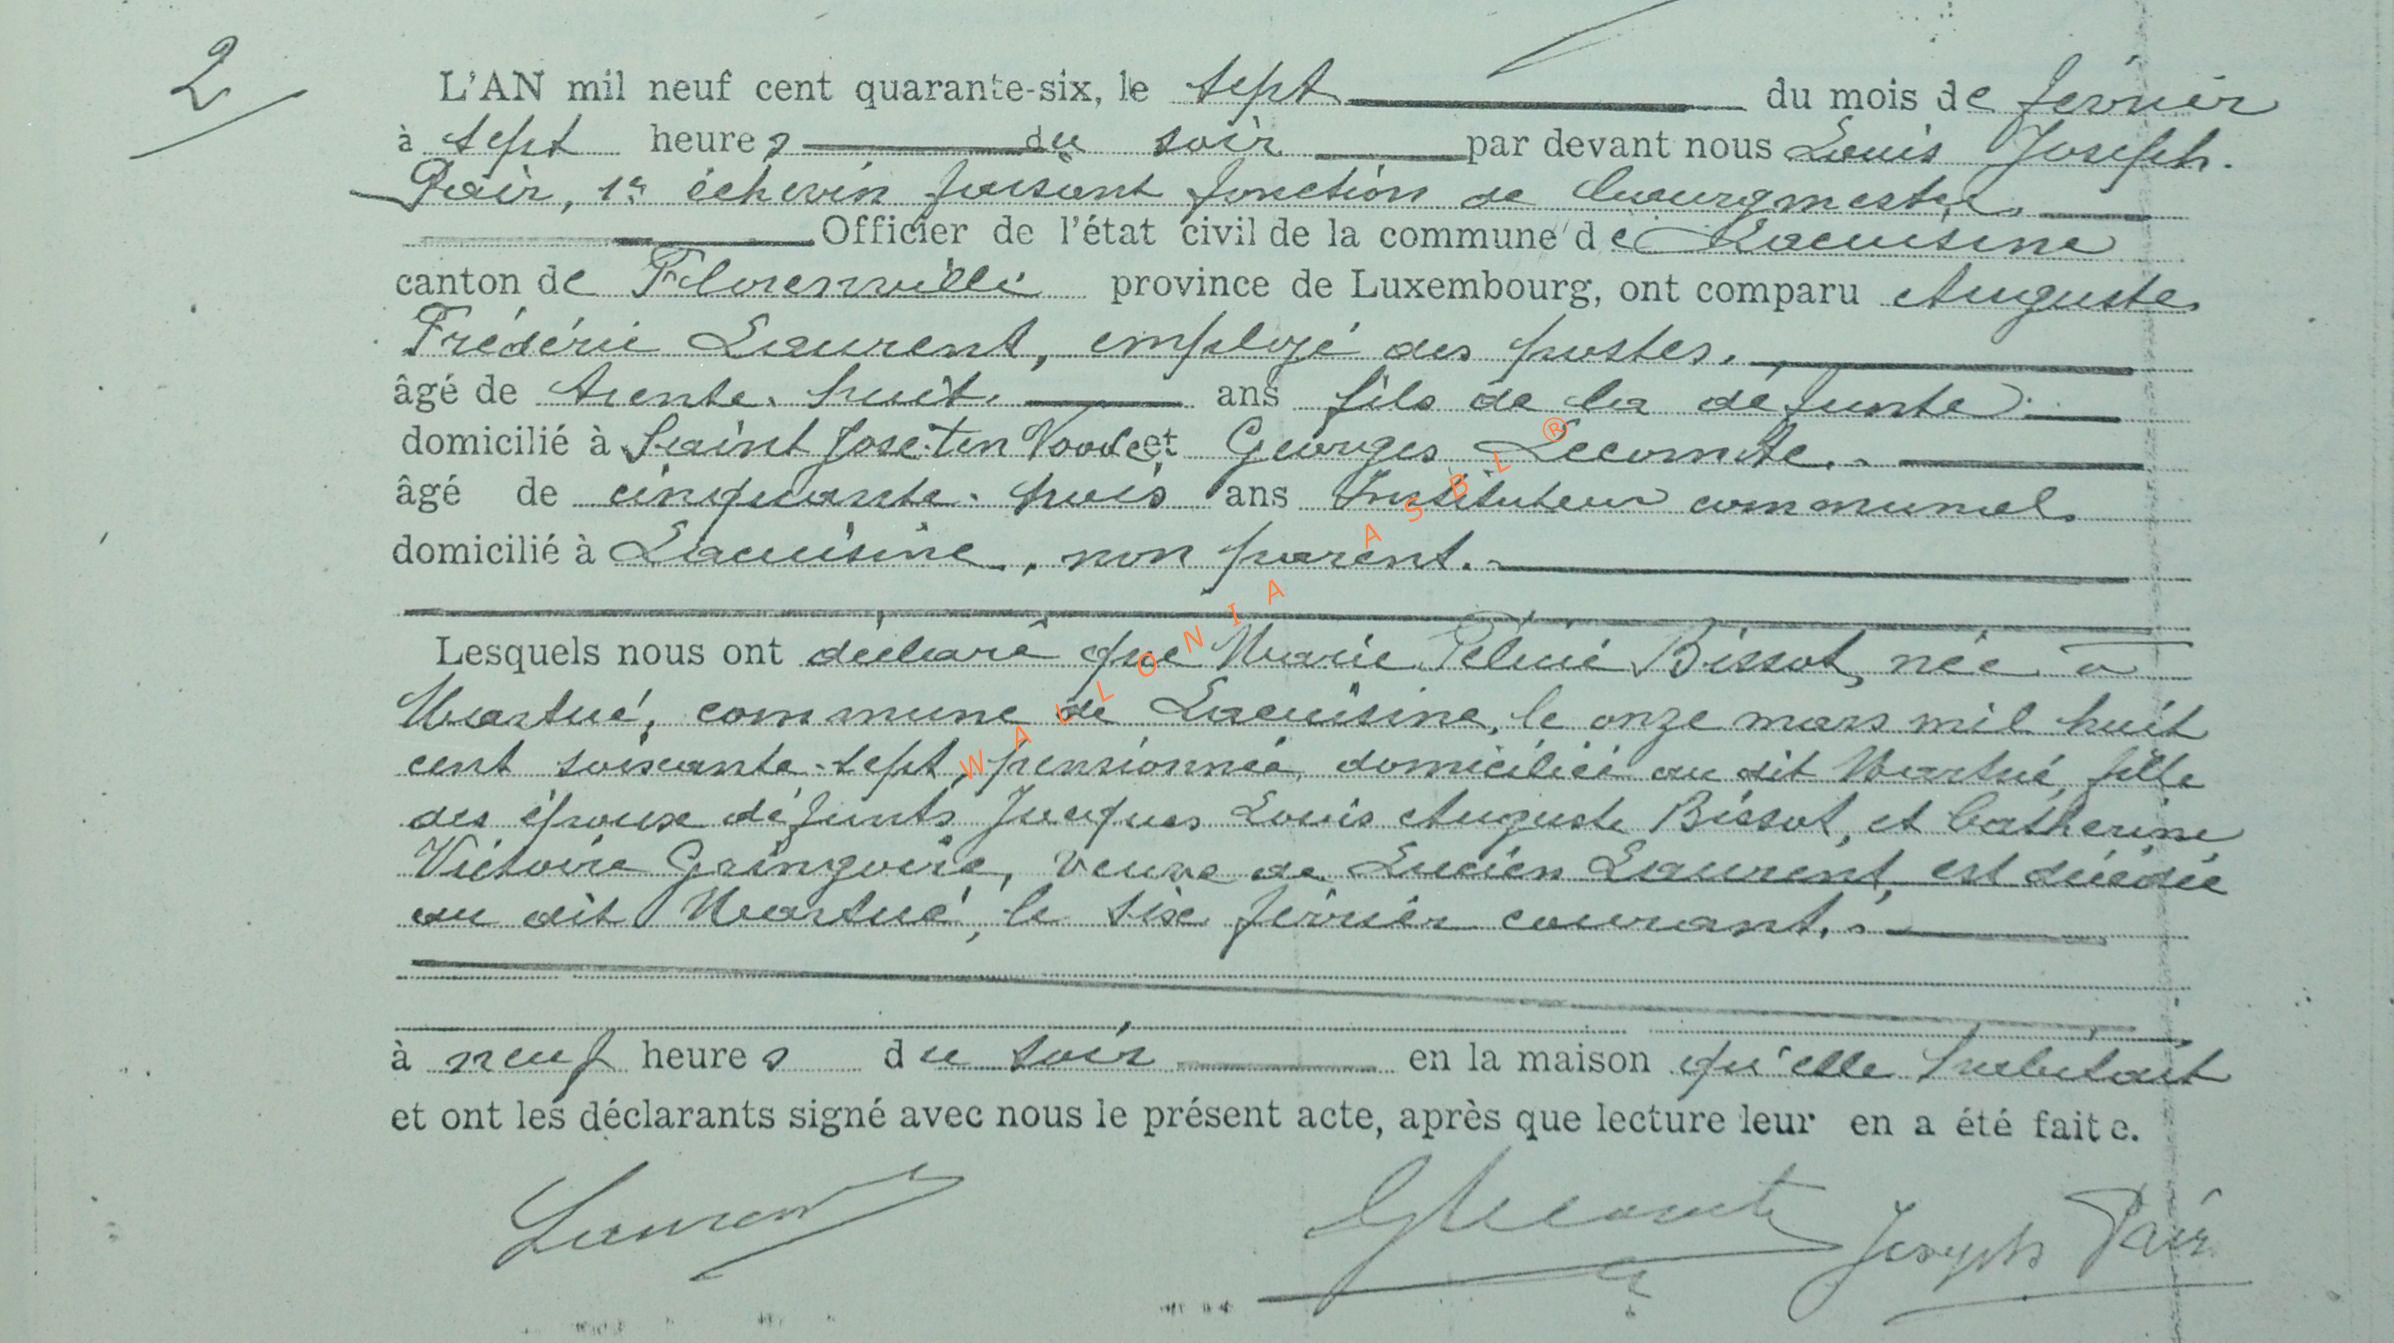 2
L'AN mil neuf cent quarante-six, le sept du mois de février
à sept heures du soir par devant nous Louis Joseph
Pair, 1er échevin faisant fonction de bourgmestre
Officier de l'état civil de la commune de Lacuisine
canton de Florenville province de Luxembourg, ont comparu Auguste
Frédéric Laurent, employé des postes.
âgé de trente-huit ans fils de la défunte
domicilié à Saint Josse-ten Noode et Georges Lecomte.
âgé de cinquante-trois ans Instituteur communal
domicilié à Lacuisine, non parent.
Lesquels nous ont déclaré que Marie Félicie Bissot, née à
Martué, commune de Lacuisine, le onze mars mil huit
cent soixante-sept, pensionnée, domiciliée au dit Martué, fille
des époux défunts Jacques Louis Auguste Bissot, et Catherine
Victoire Gringoire, veuve de Lucien Laurent, est décédée
au dit Martué, le six février courant.
à neuf heures du soir en la maison qu'elle habitait
et ont les déclarants signé avec nous le présent acte, après que lecture leur en a été faite.
Laurent GLecomte Joseph Pair
WALLONIA ASBL ®